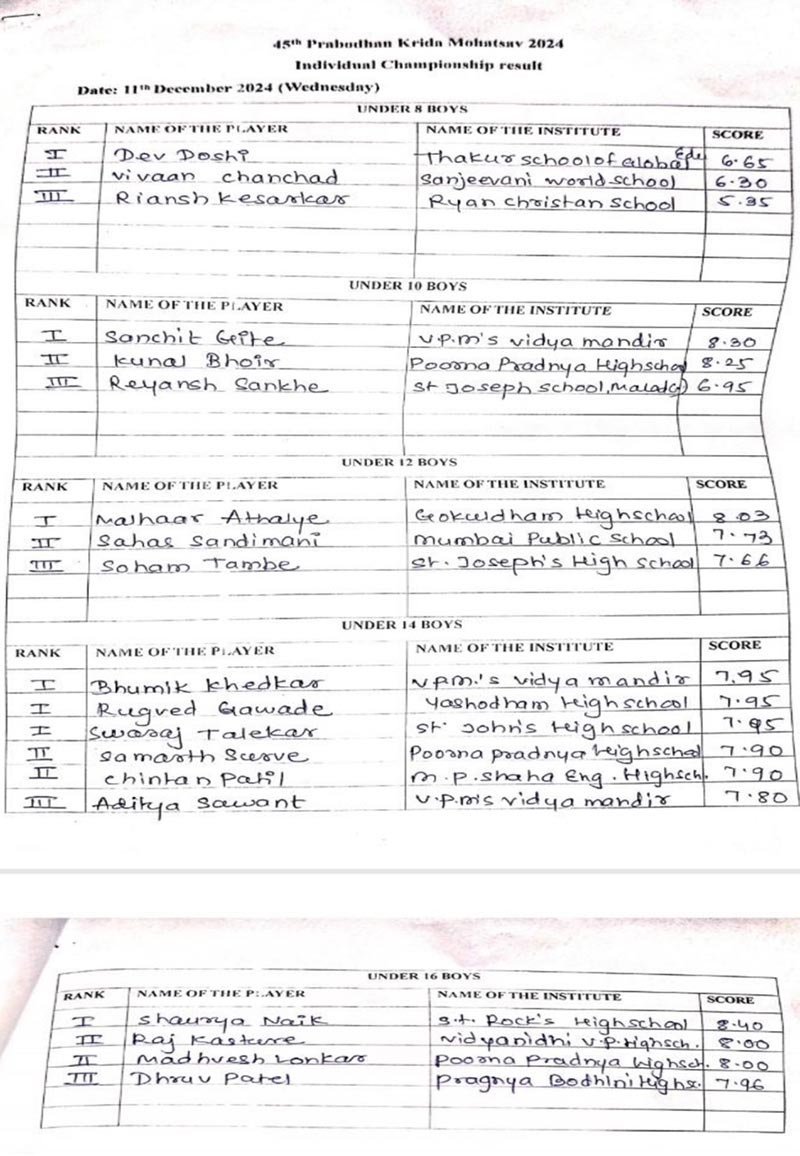 45th Prabodhan Krida Mohatsav 2024
Individual Championship result
Date: 11th December 2024 (Wednesday)
UNDER 8 BOYS
RANK NAME OF THE PLAYER NAME OF THE INSTITUTE SCORE
I Dev Doshi Thakur school of Global Edu 6.65
II vivaan chanchad Sanjeevani world school 6.30
III Riansh Kesarkar Ryan christan school 5.35
UNDER 10 BOYS
RANK NAME OF THE PLAYER NAME OF THE INSTITUTE SCORE
I Sanchit Geite V.P.M's vidya mandir 8.30
II Kunal Bhoir Poorna Pradnya Highschool 8.25
III Reyansh Sankhe St Joseph School, Malad(w) 6.95
UNDER 12 BOYS
RANK NAME OF THE PLAYER NAME OF THE INSTITUTE SCORE
I Malhaar Athalye Gokuldham Highschool 8.03
II Sahas Sandimani Mumbai Public School 7.73
III Soham Tambe St. Joseph's High School 7.66
UNDER 14 BOYS
RANK NAME OF THE PLAYER NAME OF THE INSTITUTE SCORE
I Bhumik Khedkar V.P.M.'s vidya mandir 7.95
I Rugved Gawade Yashodham Highschool 7.95
I Swaraj Talekar St. John's Highschool 7.95
II Samarth Surve Poorna pradnya Highschool 7.90
II Chintan Patil M.P. Shaha Eng. Highsch. 7.90
III Aditya Sawant V.P.M's vidya mandir 7.80
UNDER 16 BOYS
RANK NAME OF THE PLAYER NAME OF THE INSTITUTE SCORE
I Shaurya Naik S.t. Rock's Highschool 8.40
II Raj Kasture Vidyanidhi V.P. Highsch. 8.00
II Madhvesh Lonkar Poorna Pradnya Highsch. 8.00
III Dhruv Patel Pragnya Bodhini Highs. 7.96